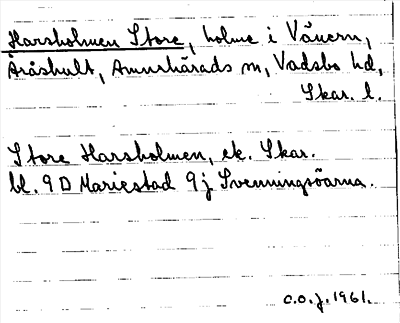 Harsholmen Store, holme i Vänern,
Åråshult, Amnehärads sn, Vadsbo hd,
Skar. l.
Store Harsholmen, ek. Skar.
bl. 9D Mariestad 9j Svenningsöarna.
C.O.J. 1961.